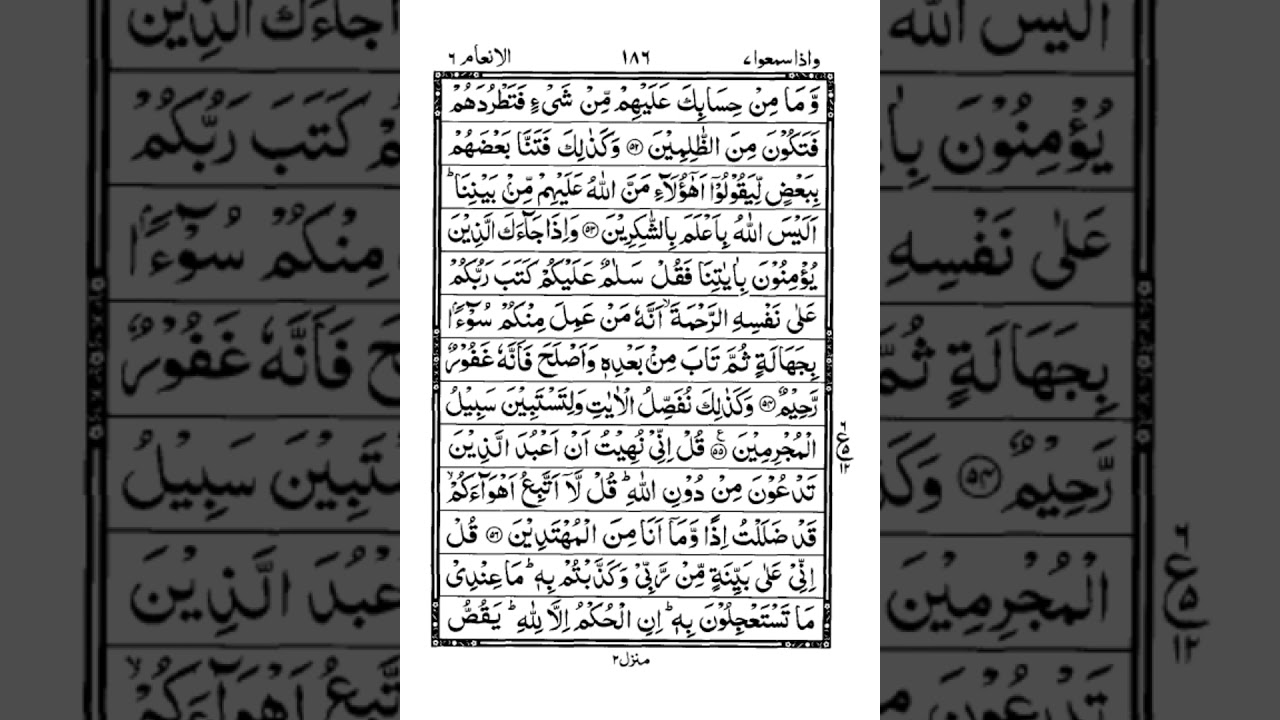 واذاسمعوا۷ ۱۸۶ الانعام ۶
وَّمَا مِنْ حِسَابِكَ عَلَيْهِمْ مِّنْ شَىْءٍ فَتَطْرُدَهُمْ
فَتَكُوْنَ مِنَ الظّٰلِمِيْنَ ۵۲ وَكَذٰلِكَ فَتَنَّا بَعْضَهُمْ
بِبَعْضٍ لِّيَقُوْلُوْۤا اَهٰۤؤُلَآءِ مَنَّ اللّٰهُ عَلَيْهِمْ مِّنْۢ بَيْنِنَا ؕ
اَلَيْسَ اللّٰهُ بِاَعْلَمَ بِالشّٰكِرِيْنَ ۵۳ وَاِذَا جَآءَكَ الَّذِيْنَ
يُؤْمِنُوْنَ بِاٰيٰتِنَا فَقُلْ سَلٰمٌ عَلَيْكُمْ كَتَبَ رَبُّكُمْ
عَلٰى نَفْسِهِ الرَّحْمَةَ ۙ اَنَّهٗ مَنْ عَمِلَ مِنْكُمْ سُوْٓءًۢا
بِجَهَالَةٍ ثُمَّ تَابَ مِنْۢ بَعْدِهٖ وَاَصْلَحَ فَاَنَّهٗ غَفُوْرٌ
رَّحِيْمٌ ۵۴ وَكَذٰلِكَ نُفَصِّلُ الْاٰيٰتِ وَلِتَسْتَبِيْنَ سَبِيْلُ
الْمُجْرِمِيْنَ ۵۵ قُلْ اِنِّىْ نُهِيْتُ اَنْ اَعْبُدَ الَّذِيْنَ
تَدْعُوْنَ مِنْ دُوْنِ اللّٰهِ ؕ قُلْ لَّاۤ اَتَّبِعُ اَهْوَآءَكُمْ ۙ
قَدْ ضَلَلْتُ اِذًا وَّمَاۤ اَنَا مِنَ الْمُهْتَدِيْنَ ۵۶ قُلْ
اِنِّىْ عَلٰى بَيِّنَةٍ مِّنْ رَّبِّىْ وَكَذَّبْتُمْ بِهٖ ؕ مَا عِنْدِىْ
مَا تَسْتَعْجِلُوْنَ بِهٖ ؕ اِنِ الْحُكْمُ اِلَّا لِلّٰهِ ؕ يَقُصُّ
۶
ع
۵
۱۲
منزل۲